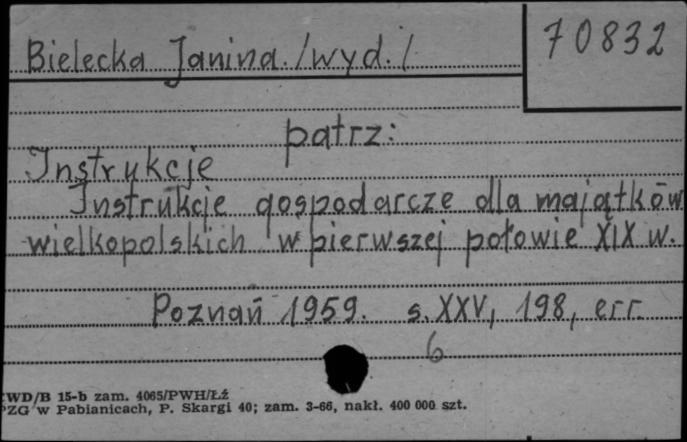 Bielecka Janina /wyd./
70832
patrz:
Instrukcje
Instrukcje gospodarcze dla majątków
wielkopolskich w pierwszej połowie XIX w.
Poznań 1959. s. XXV, 198, err.
6
WD/B 15-b zam. 4065/PWH/Łź
PZG w Pabianicach, P. Skargi 40; zam. 3-66, nakł. 400 000 szt.